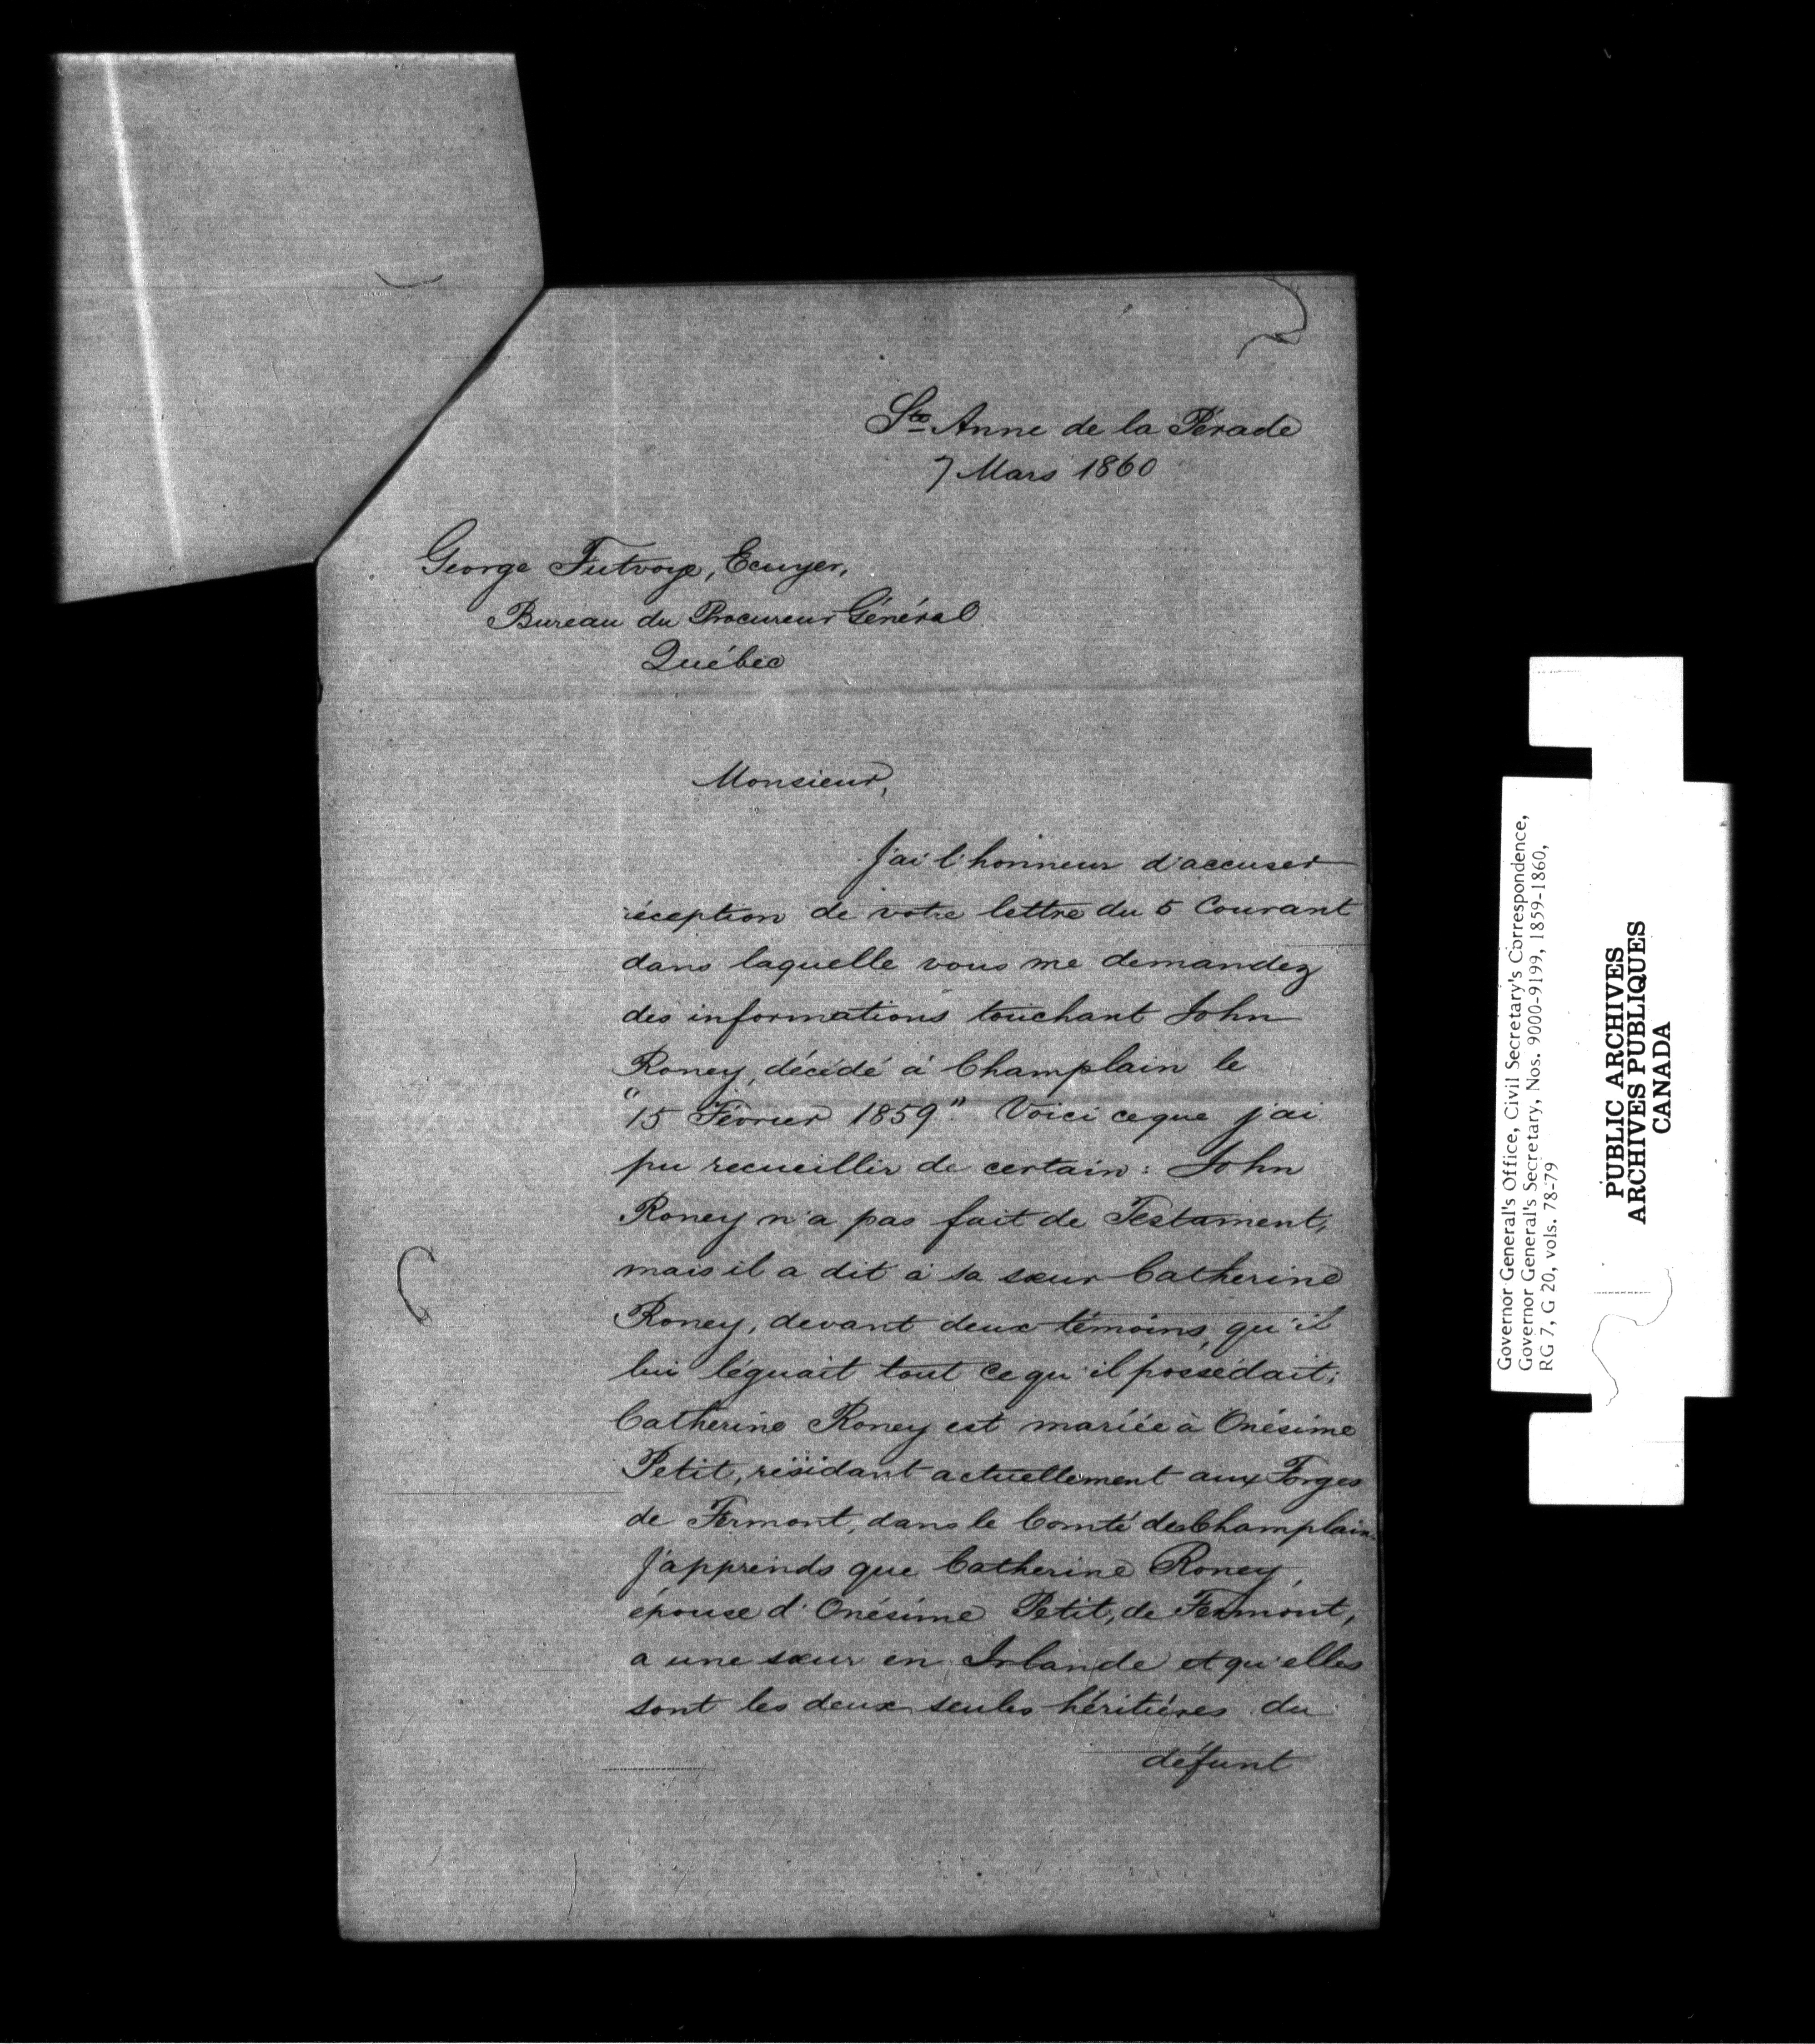 Ste Anne de la Pérade
7 Mars 1860
George Futvoye, Ecuyer,
Bureau du Procureur Général
Québec
Monsieur,
J'ai l'honneur d'accuser
réception de votre lettre du 5 Courant
dans laquelle vous me demandez
des informations touchant John
Roney, décédé à Champlain le
"15 Février 1859". Voici ce que j'ai
pu recueillir de certain : John
Roney n'a pas fait de Testament,
mais il a dit à sa sœur Catherine
Roney, devant deux témoins, qu'il
lui léguait tout ce qu'il possédait;
Catherine Roney est mariée à Onésime
Petit, résidant actuellement aux Forges
de Fermont, dans le Comté de Champlain.
J'apprends que Catherine Roney,
épouse d'Onésime Petit, de Fermont,
a une sœur en Irlande et qu'elles
sont les deux seules héritières du
défunt
Governor General's Office, Civil Secretary's Correspondence,
Governor General's Secretary, Nos. 9000-9199, 1859-1860,
RG 7, G 20, vols. 78-79
PUBLIC ARCHIVES
ARCHIVES PUBLIQUES
CANADA